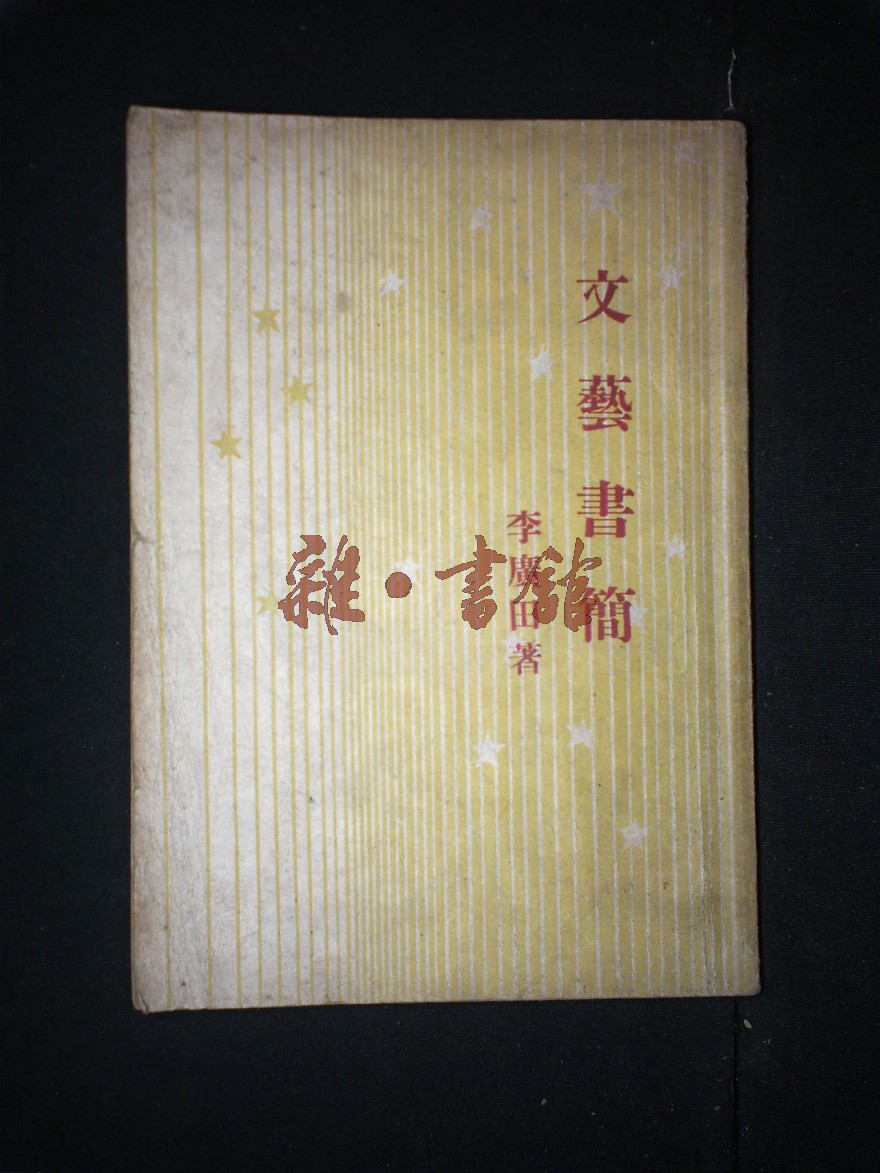 文藝書簡
李廣田著
雜·書館